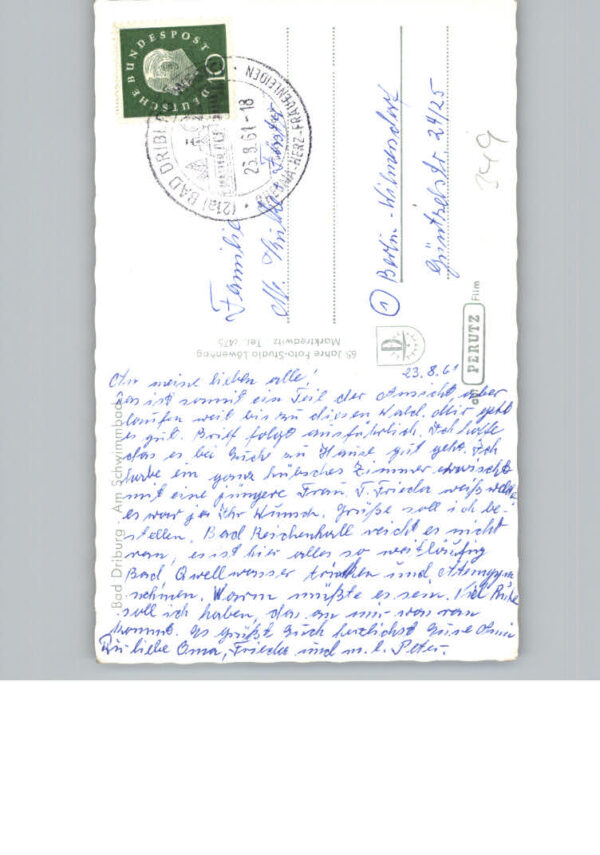 DEUTSCHE BUNDESPOST
10
(21a) BAD DRIBURG
23.8.61-18
HERZ-FRAUENLEIDEN
Familie
M.
(1) Berlin-Wilmersdorf
Güntzelstr. 24/25
349
65 Jahre Foto-Studio Löwenhag
Marktredwitz Tel. 6475
PERUTZ
Film
Bad Driburg · Am Schwimmbad
23.8.61
Ihr meine lieben alle!
Das ist somit ein Teil der Ansicht aber
laufen weit bis zu diesen Wald. Mir geht
es gut. Brief folgt ausführlich. Ich hoffe
das es bei Euch zu Hause gut geht. Ich
habe ein ganz hübsches Zimmer erwischt
mit eine jüngere Frau. T. Frieda weiß
es war ja Ihr Wunsch. Grüße soll ich be-
stellen. Bad Reichenhall reicht es nicht
ran, es ist hier alles so weitläufig
Bad, Quellwasser trinken und
Warm müßte es sein. Viel
soll ich haben, das an mir was ran
kommt. Es grüßt Euch herzlichst Eure
Du liebe Oma, Frieda und m. l. Peter.